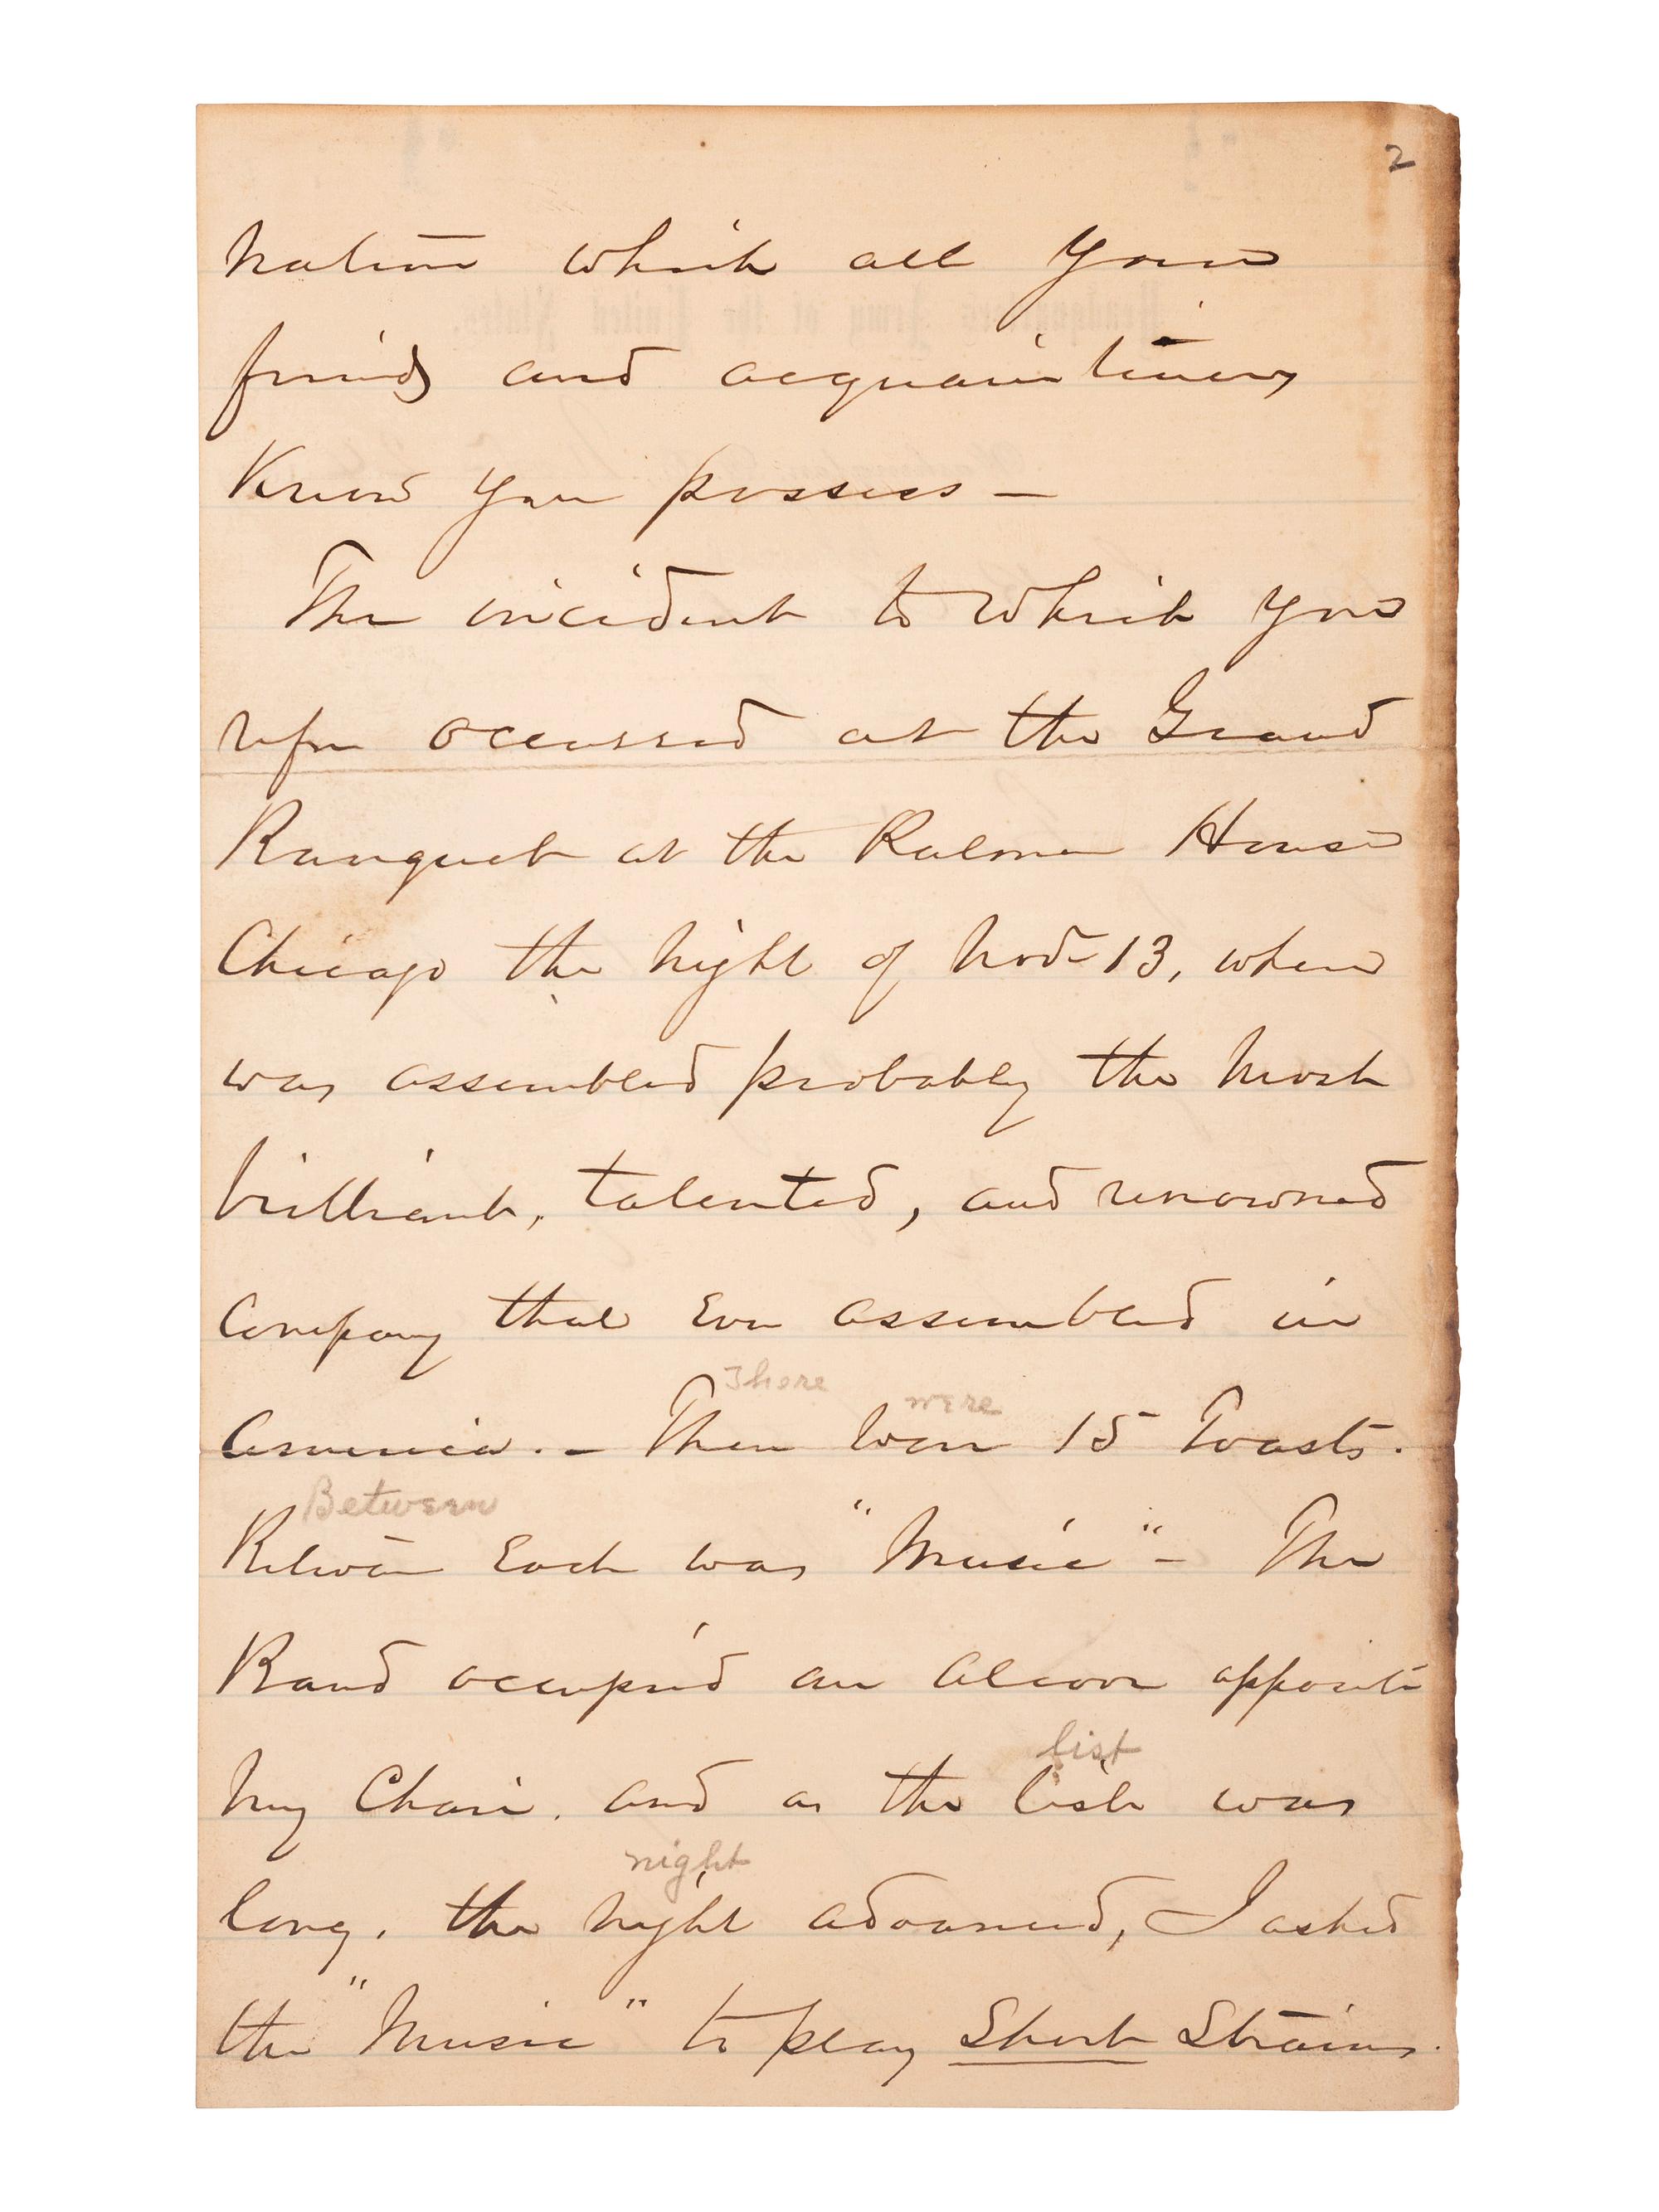 2
nature which all your
friends and acquaintances
Know you possess —
The incident to which you
refer occurred at the Grand
Banquet at the Palmer House
Chicago the night of Nov 13, where
was assembled probably the most
brilliant, talented, and renowned
Company that Ever assembled in
There were
America. — There were 15 Toasts.
Between
Between Each was "Music" — The
Band occupied an alcove opposite
list
my Chair, and as the list was
night
long, the night advanced, I asked
the "Music" to play Short Strains.